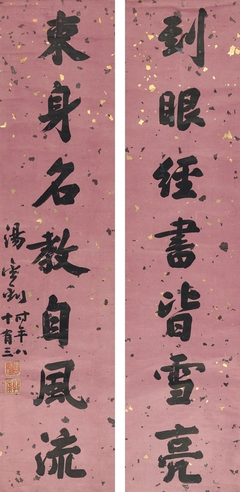 到眼經書皆雪亮
束身名教自風流
湯金釗
時年八
十有三